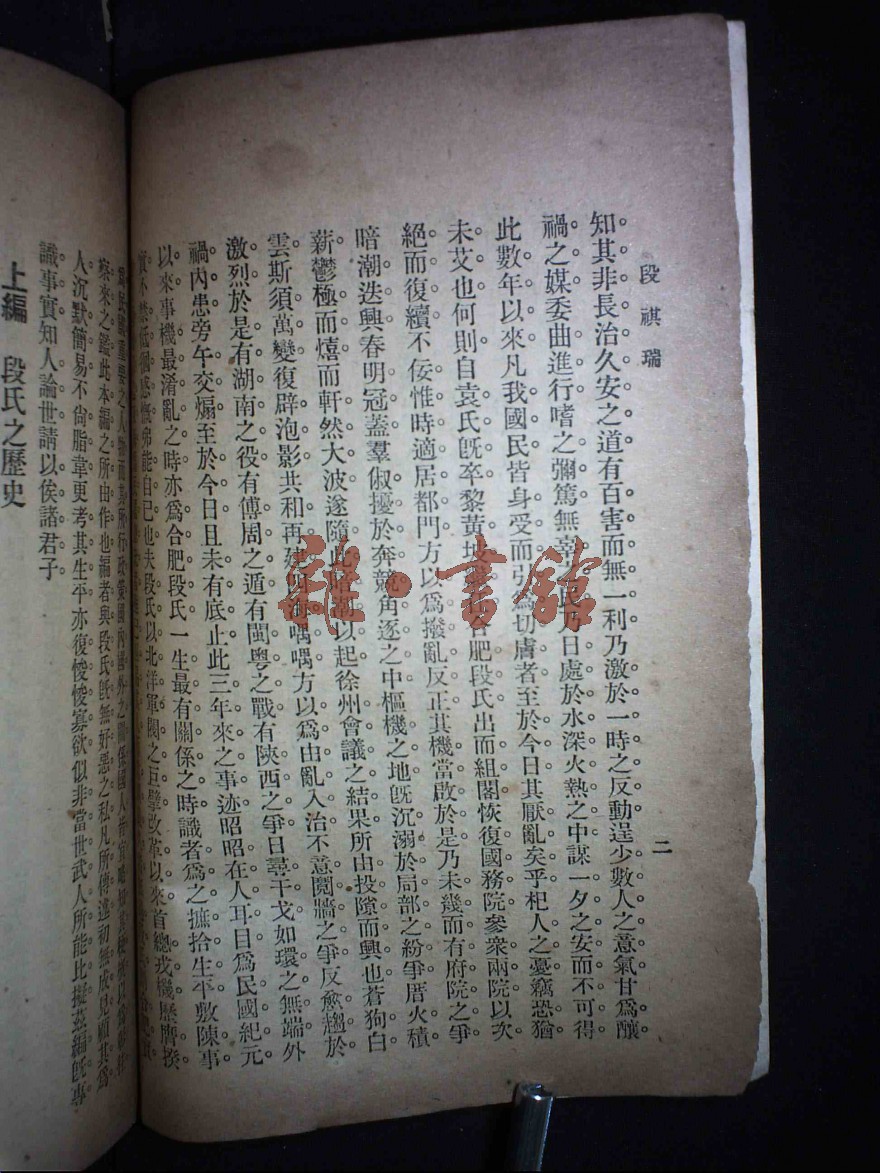 段祺瑞
二
知其非長治久安之道有百害而無一利乃激於一時之反動逞少數人之意氣甘爲釀
禍之媒委曲進行嗜之彌篤無辜民乃日處於水深火熱之中謀一夕之安而不可得
此數年以來凡我國民皆身受而引爲切膚者至於今日其厭亂矣乎杞人之憂竊恐猶
未艾也何則自袁氏旣卒黎黃坡合肥段氏出而組閣恢復國務院參衆兩院以次
絕而復續不佞惟時適居都門方以爲撥亂反正其機當啟於是乃未幾而有府院之爭
暗潮迭興春明冠蓋羣俶擾於奔競角逐之中樞機之地旣沉溺於局部之紛爭厝火積
薪鬱極而熺而軒然大波遂隨此暗潮以起徐州會議之結果所由投隙而興也蒼狗白
雲斯須萬變復辟泡影共和再建四海喁喁方以爲由亂入治不意鬩牆之爭反愈趨於
激烈於是有湖南之役有傅周之遁有閩粵之戰有陝西之爭日尋干戈如環之無端外
禍內患旁午交煽至於今日且未有底止此三年來之事迹昭昭在人耳目爲民國紀元
以來事機最淆亂之時亦爲合肥段氏一生最有關係之時識者爲之摭拾生平敷陳事
實不禁低徊感慨弗能自已也夫段氏以北洋軍閥之巨擘改革以來首總戎機歷膺揆
爲民國重要之人物而其所行政策國內國外之關係國人皆
察來之鑑此本編之所由作也編者與段氏旣無好惡之私凡所傳述初無成見顧其爲
人沉默簡易不尙脂韋更考其生平亦復悛悛寡欲似非當世武人所能比擬茲編旣專
識事實知人論世請以俟諸君子
上編 段氏之歷史
雜·書館